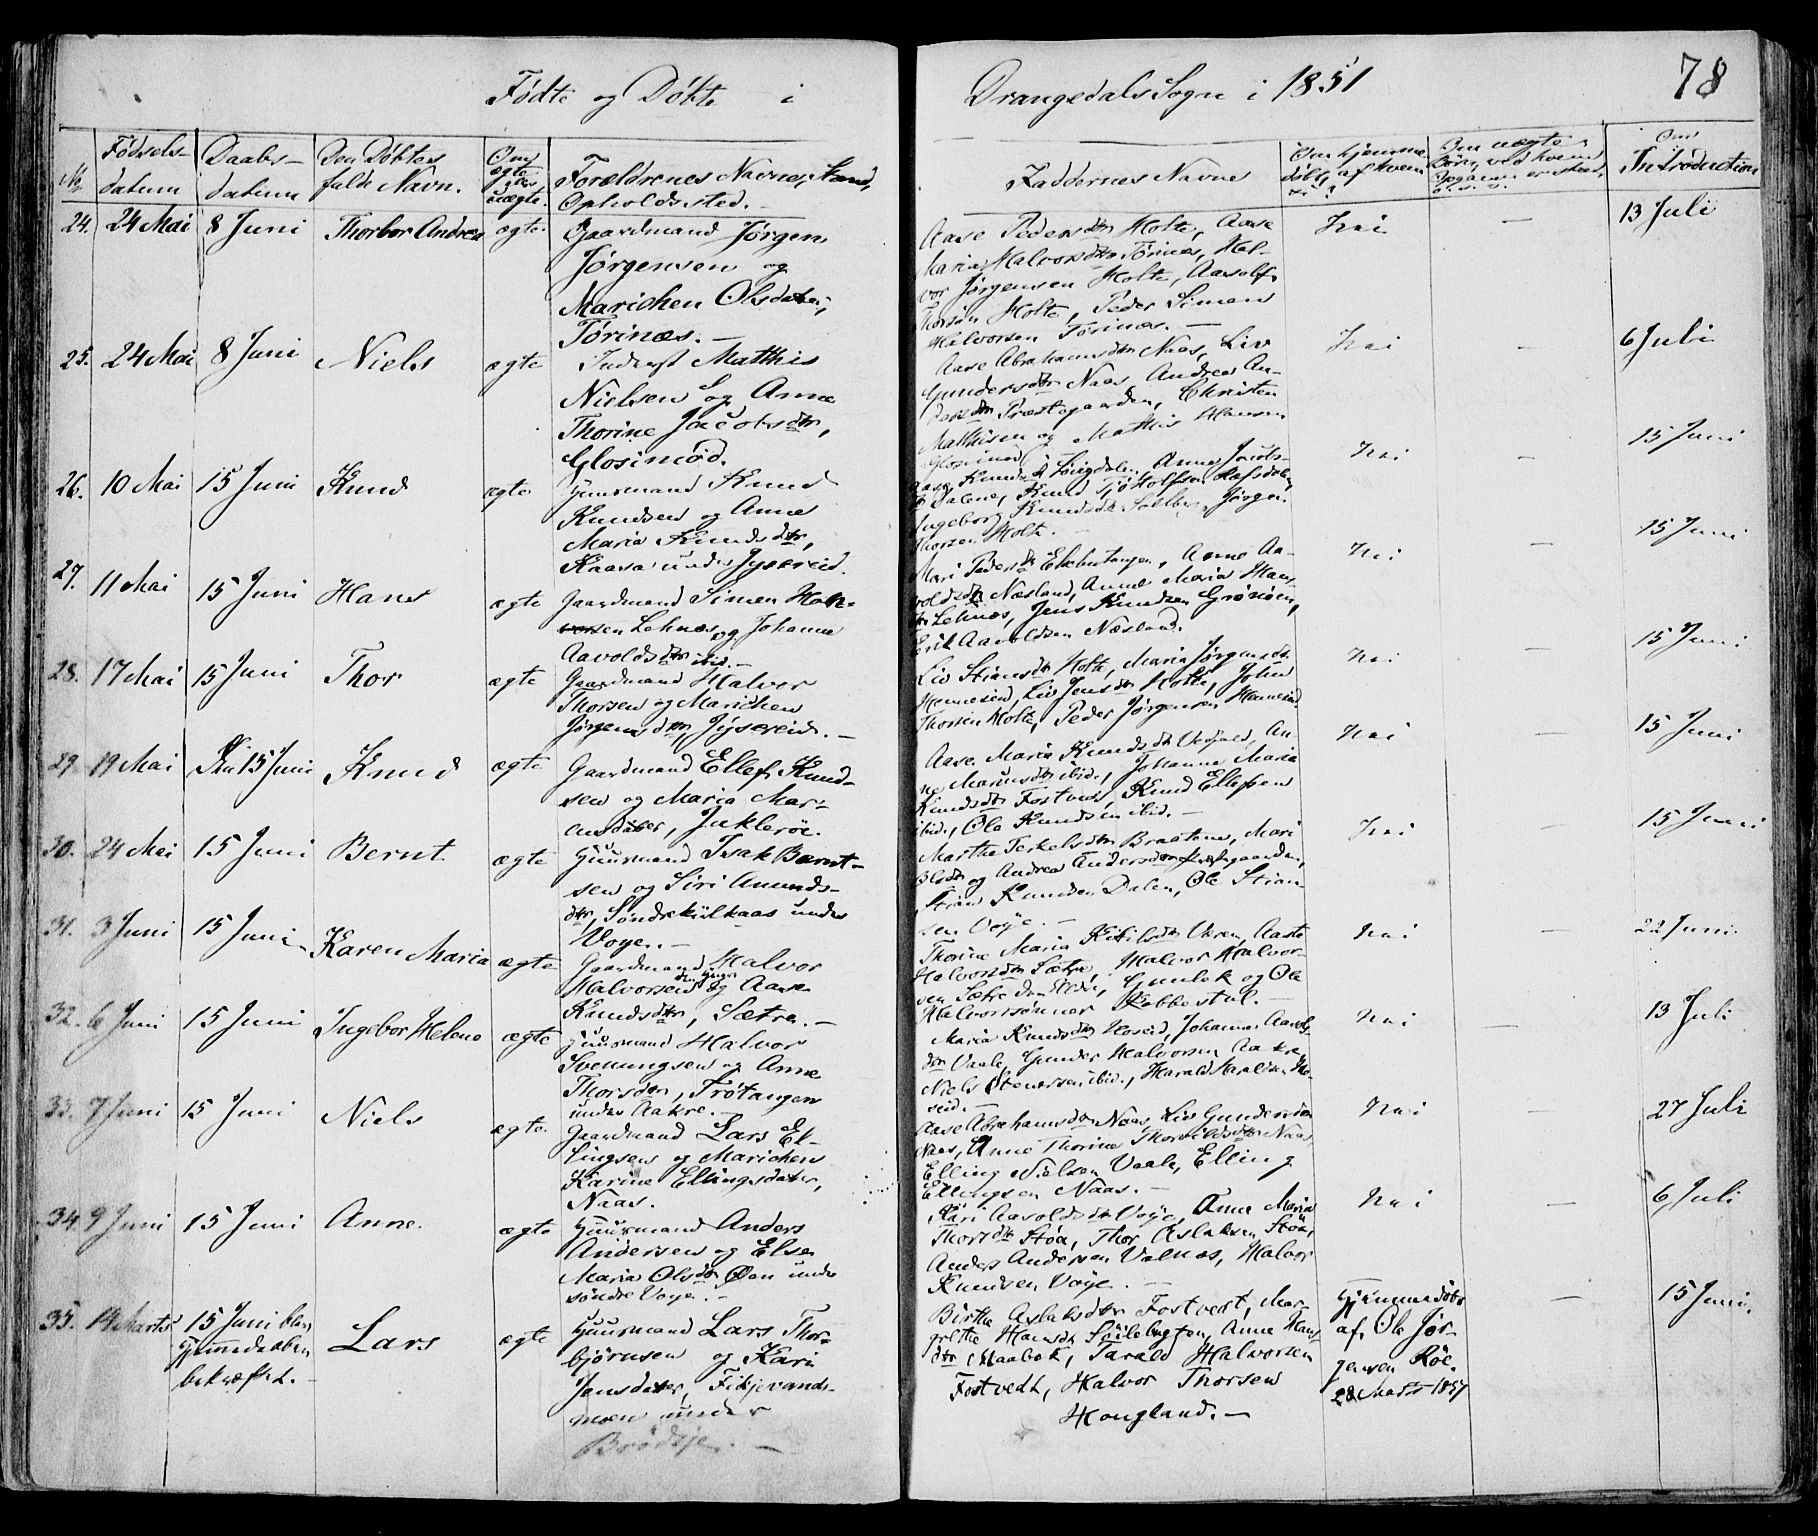 Fødte og Døbte i
Drangedals Sogn i 1851
78
No
Fødsels-
datum
Daabs-
datum
Den Døbtes
fulde Navn.
Om
ægte
uægte.
Forældrenes Navne, Stand,
Opholdssted.
Faddernes Navne
Om hjemme
døbt, af hvem
Om uægte
Om
Introduction
24. 24 Mai 8 Juni Thorbor Andrea ægte. Gaardmand Jørgen
Jørgensen og
Marichen Olsdatter,
Torinæs. —
Aase Pedersdtr Holte, Aase
Maria Halvorsdtr Torinæs, Hal-
vor Jørgensen Holte, Aasolf
Thorsen Holte, Peder Simens
Halvorsen Torinæs. —
Nei
—
13 Juli
25. 24 Mai 8 Juni Niels ægte Inderst Matthis
Nielsen og Anne
Thorine Jacobsdtr,
Glosimod.
Aase Abrahamsdtr Naas, Liv
Gundersdtr Naas, Andrea An-
dersdtr Præstegaarden, Christen
Mathisen og Mathis Hansen
Glosimod
Nei
—
6 Juli
26. 10 Mai 15 Juni Knud ægte Huusmand Knud
Knudsen og Anne
Maria Knudsdtr,
Kaasa under Jysereid.
Anne Jacobs-
dtr Dalene, Knud
Ingeborg Knudsdtr Jørgen
Thorsen Holte. —
Nei
—
15 Juni
27. 11 Mai 15 Juni Hans ægte Gaardmand Simen Hal-
vorsen Lehnæs og Johanne
Aavoldsdtr ibid. —
Mari Pedersdtr Anne Aa-
voldsdtr Næsland, Anne Maria Hans-
dtr Lehnæs, Jens Knudsen Grønøen,
Erik Aavoldsen Næsland.
Nei
—
15 Juni
28. 17 Mai 15 Juni Thor ægte Gaardmand Halvor
Thorsen og Marichen
Jørgensdtr, Jysereid. —
Liv Stiansdtr Holte, Maria Jørgensdtr
Henneseid, Liv Jensdtr Holte, John
Thorsen Holte, Peder Jørgensen Henneseid
Nei
—
15 Juni
29. 19 Mai 15 Juni Knud ægte Gaardmand Ellef Knud-
sen og Maria Mar-
cusdatter, Juklerøe.
Aase Maria Knudsdtr An-
ne Marcusdtr ibid., Johanne Maria
Knudsdtr Fostvedt, Knud Ellefsen
ibid., Ole Knudsen ibid. —
Nei
—
15 Juni
30. 24 Mai 15 Juni Bernt. ægte Huusmand Isak Bernt-
sen og Siri Amunds-
dtr, Søndrekiilkaas under
Voje. —
Marthe Terkelsdtr Braatene, Mari
Olsdtr og Andrea Andersdtr
Stian Knudsen Dalen, Ole Stian-
sen Voje. —
Nei
—
15 Juni
31. 3 Juni 15 Juni Karen Maria ægte Gaardmand Halvor
Halvorsen den yngre og Aase
Knudsdtr, Sætre. —
Thorine Maria Kitilsdtr Aaste
Halvorsdtr Sætre, Halvor Halvor-
sen Sætre den Eldre, Gunlek og Ole
Halvorssønner Kobbestul. —
Nei
—
22 Juni
32. 6 Juni 15 Juni Ingebor Helene ægte Huusmand Halvor
Svenungsen og Anne
Thorsdtr, Trøtangen
under Aakre. —
Maria Knudsdtr Hoseid, Johanne Aavolds-
dtr Vaale, Gunder Halvorsen Aakre
Niels Stenersen ibid., Harald Haraldsen Ho-
seid. —
Nei
—
13 Juli
33. 7 Juni 15 Juni Niels ægte. Gaardmand Lars El-
lingsen og Marichen
Karine Ellingsdatter,
Naas.
Aase Abrahamsdtr Naas, Liv Gundersdtr
Naas, Anne Thorine Thorvildsdtr Naas
Elling Nielsen Vaale, Elling
Ellingsen Naas. —
Nei
—
27 Juli
34. 9 Juni 15 Juni Anne. ægte Huusmand Anders
Andersen og Else
Maria Olsdtr Øen under
søndre Voje. —
Kari Aavoldsdtr Voje, Anne Maria
Thorsdtr Støa, Thor Aslaksen Støa,
Anders Andersen Valnæs, Halvor
Knudsen Voje. —
Nei
—
6 Juli
35. 14 Marts 15 Juni blev
Hjemmedaaben
bekræftet. —
Lars ægte Huusmand Lars Thor-
bjørnsen og Kari
Jensdatter, Fikjevands-
moen under
Brødsje. —
Birthe Aslaksdtr Fostvedt, Mar-
grethe Hansdtr Anne Hans-
dtr Maabek, Tarald Halvorsen
Fostvedt, Halvor Thorsen
Hougland. —
Hjemmedøbt
af Ole Jør-
gensen Røe.
28 Marts 1851
—
15 Juni.